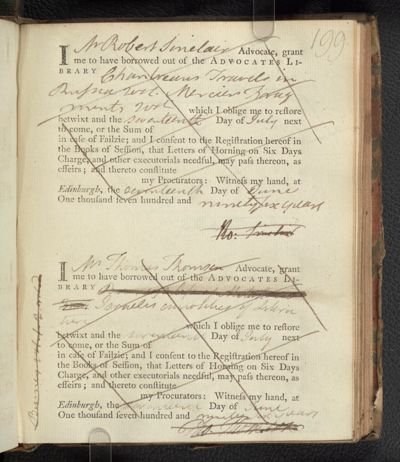 199
I Mr Robert Sinclair Advocate, grant
me to have borrowed out of the ADVOCATES LI-
BRARY Chantreaus Travels in
Russia 2 vol. Merciers Frag
ments 2 vol which I oblige me to restore
betwixt and the seventeenth Day of July next
to come, or the Sum of
in case of Failzie; and I consent to the Registration hereof in
the Books of Session, that Letters of Horning on Six Days
Charge, and other executorials needful, may pass thereon, as
effeirs; and thereto constitute
my Procurators: Witness my hand, at
Edinburgh, the seventeenth Day of June
One thousand seven hundred and ninety six years
Ro: Sinclair
I Mr Thomas Thomson Advocate, grant
me to have borrowed out of the ADVOCATES LI-
BRARY
which I oblige me to restore
betwixt and the seventeenth Day of July next
to come, or the Sum of
in case of Failzie; and I consent to the Registration hereof in
the Books of Session, that Letters of Horning on Six Days
Charge, and other executorials needful, may pass thereon, as
effeirs; and thereto constitute
my Procurators: Witness my hand, at
Edinburgh, the Day of June
One thousand seven hundred and ninety years